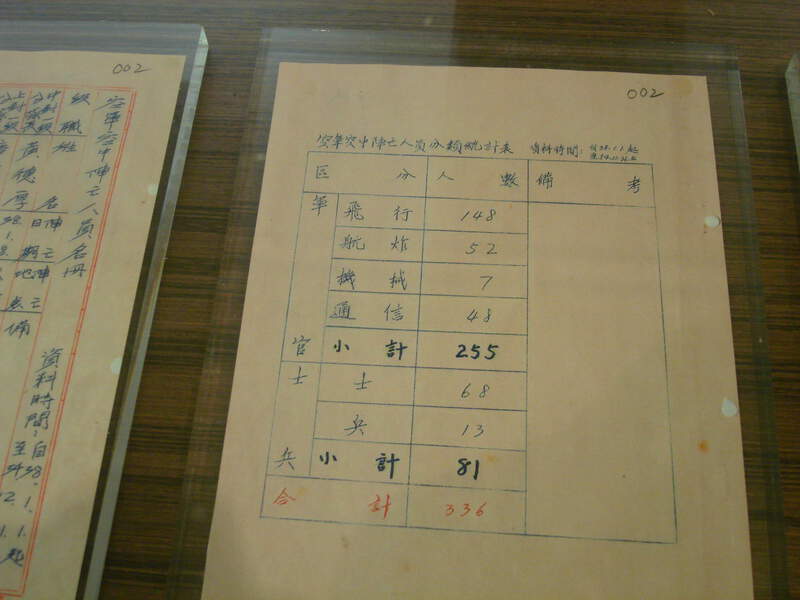 002
空軍空中陣亡人員名冊
資料時間:自38.1.1.起
級職
姓名
陣亡日期
陣亡地
備
黃德厚
002
空軍空中陣亡人員分類統計表 資料時間:
區分 人數 備考
軍官 飛行 148
航炸 52
機械 7
通信 48
小計 255
士兵 士 68
兵 13
小計 81
合計 336